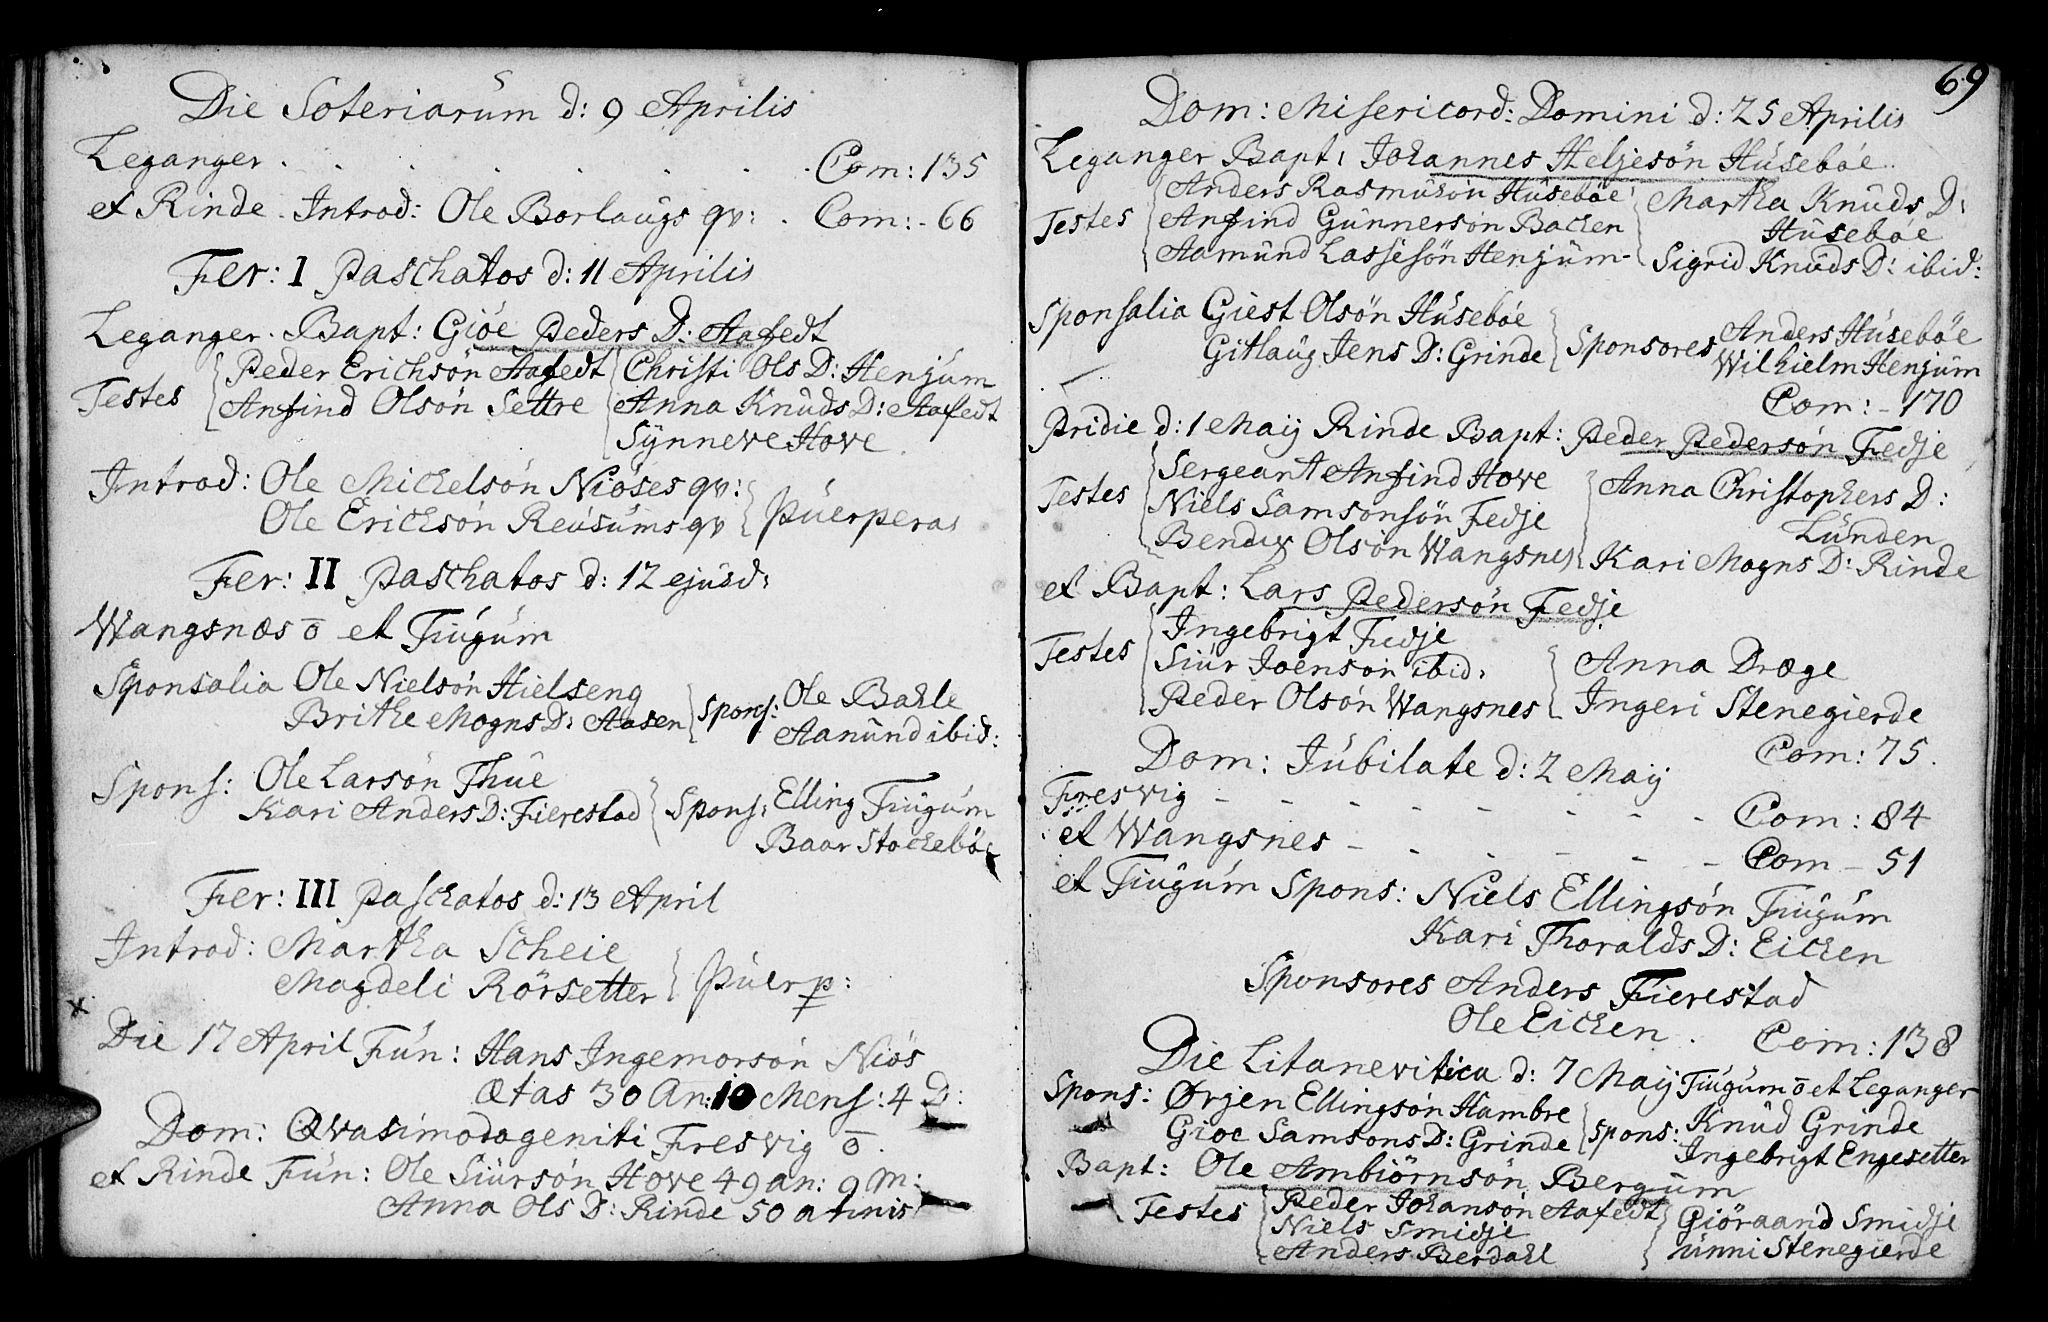 Die Soteriarum d: 9 Aprilis
Leganger . . . . . . . Com: 135
et Rinde . Introd: Ole Borlaugs qv: . Com: - 66
Fer: I Paschatos d: 11 Aprilis
Leganger . Bapt: Gióe Peders D: Aafedt
Testes
Peder Erichsön Aafedt
Anfind Olsön Settre
Christi Ols D: Henjum
Anna Knuds D: Aafedt
Synneve Hove
Introd: Ole Michelsön Nióses qv:
Ole Ericksön Reusums qv
Puerpera
Fer: II Paschatos d: 12 ejusd:
Wangsnæs ō et Fiugum
Sponsalia Ole Nielsön Hielseng
Brithe Mogns D: Aasen
Spons: Ole Bahle
Aanund ibid:
Spons: Ole Larsön Thue
Kari Anders D: Fierestad
Spons: Elling Fiugum
Baar Stochebö
Fer: III Paschatos d: 13 April
Introd: Martha Scheie
Magdeli Rörsetter
Puerp:
x
Die 17 April Fun: Hans Ingemorsön Niös
Ætas 30 An: 10 Mens: 4 D:
Dom: Qvasimodogeniti Fresvig ō.
et Rinde Fun: Ole Siursön Hove 49 an: 9 M:
Anna Ols D: Rinde 50 annis
69
Dom: Misericord: Domini d: 25 Aprilis
Leganger Bapt: Johannes Heljesön Husebóe
Testes
Anders Rasmusön Husebóe
Anfind Gunnersön Bachen
Aamund Lassesön Henjum
Martha Knuds D:
Husebóe
Sigrid Knuds D: ibid:
Sponsalia Giest Olsön Husebóe
Gitlaug Jens D: Grinde
Sponsores Anders Husebóe
Wilhielm Henjum
Com: - 170
Pridie d: 1 Maij Rinde Bapt: Peder Pedersön Fedje
Testes
Sergeant Anfind Hove
Niels Samsonsön Fedje
Bendix Olsön Wangsnes
Anna Christophers D:
Lunden
Kari Mogns D: Rinde
et Bapt: Lars Pedersön Fedje
Testes
Ingebrigt Fedje
Siur Joensön ibid:
Peder Olsön Wangsnes
Anna Dræge
Ingeri Stenegierde
Com: 75.
Dom: Jubilate d: 2 Maij
Fresvig - - - - - - - - Com: 84
et Wangsnes - - - - - - Com - 51
et Fiugum Spons: Niels Ellingsön Fiugum
Kari Thoralds D: Eichen
Sponsores Anders Fierestad
Ole Eichen . Com: 138
Die Litanevitica d: 7 Maij Fiugum ō et Leganger
Spons: Ørjen Ellingsön Hambre
Gioe Samsons D: Grinde
Spons: Knud Grinde
Ingebrigt Engesetter
Bapt: Ole Ambiörnsön Bergum
Testes
Peder Johansön Aafedt
Niels Smidje
Anders Berdahl
Giöraand Smidje
Unni Stenegierde